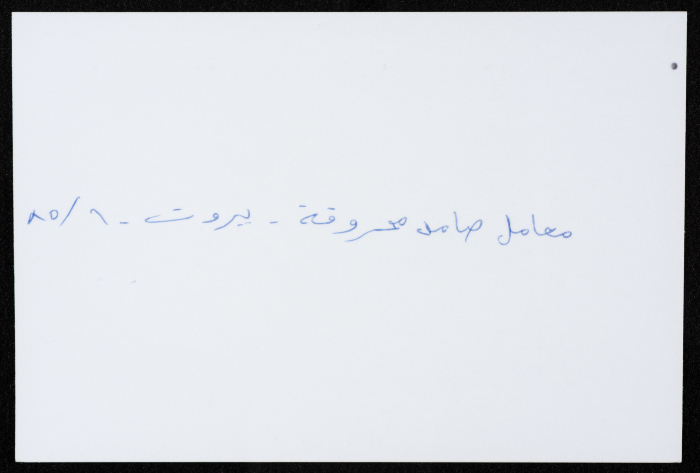 معامل صامد محروقة - بيروت - ٨٥/٦